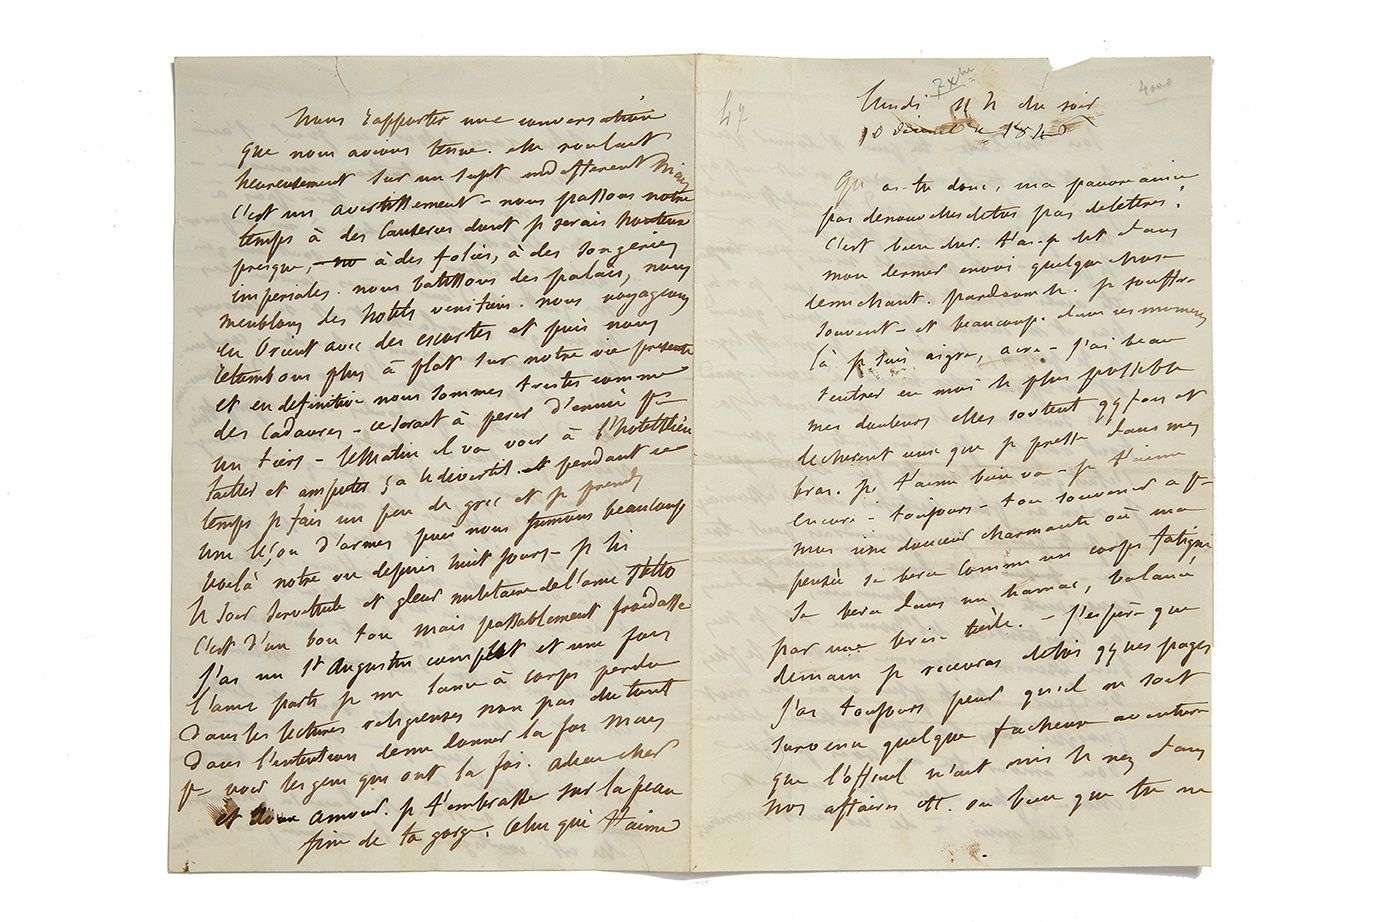 nous rapporter une conversation
que nous avions tenue. elle roulait
heureusement sur un sujet indifférent mais
c'est un avertissement – nous passons notre
temps à des causeries dont je serais honteux
presque, à des folies, à des songeries
impériales. nous bâtissons des palais, nous
meublons des hôtels vénitiens. nous voyageons
en Orient avec des escortes et puis nous
retombons plus à plat sur notre vie présente
et en définitive nous sommes tristes comme
des cadavres – ce serait à périr d'ennui pr
un tiers – le matin il va voir à l'hôtel-dieu
tailler et amputer ça le divertit. et pendant ce
temps je fais un peu de grec et je prends
une leçon d'armes puis nous fumons beaucoup
voilà notre vie depuis huit jours – je lis
le soir servitude et gleur militaire de l'ami Stello
c'est d'un bon ton mais passablement froidasse
J'ai un St Augustin complet et une fois
l'ami parti je me lance à corps perdu
dans les lectures religieuses non pas du tout
dans l'intention de me donner la foi mais
pr voir les gens qui ont la foi. adieu cher
et doux amour. je t'embrasse sur la peau
fine de ta gorge, celui qui t'aime
47
7 Xbre
4000
lundi 11 h du soir
10 décembre 1846
Qu as-tu donc, ma pauvre amie
pas de nouvelles de toi pas de lettres ?
c'est bien dur. t'ai-je dit dans
mon dernier envoi quelque chose
de méchant. pardonne le. je souffre
souvent – et beaucoup. dans ces moments
là je suis aigre, acre – j'ai beau
rentrer en moi le plus possible
mes douleurs elles sortent qqfois et
déchirent ceux que je presse dans mes
bras. je t'aime bien va – je t'aime
encore – toujours – ton souvenir a pr
moi une douceur charmante où ma
pensée se berce comme un corps fatigué
se berce dans un hamac, balancé
par une brise tiède. – J'espère que
demain je recevrai de toi qques pages
j'ai toujours peur qu'il ne soit
survenu quelque fâcheuse aventure
que l'officiel n'ait mis le nez dans
nos affaires etc. ou bien que tu ne